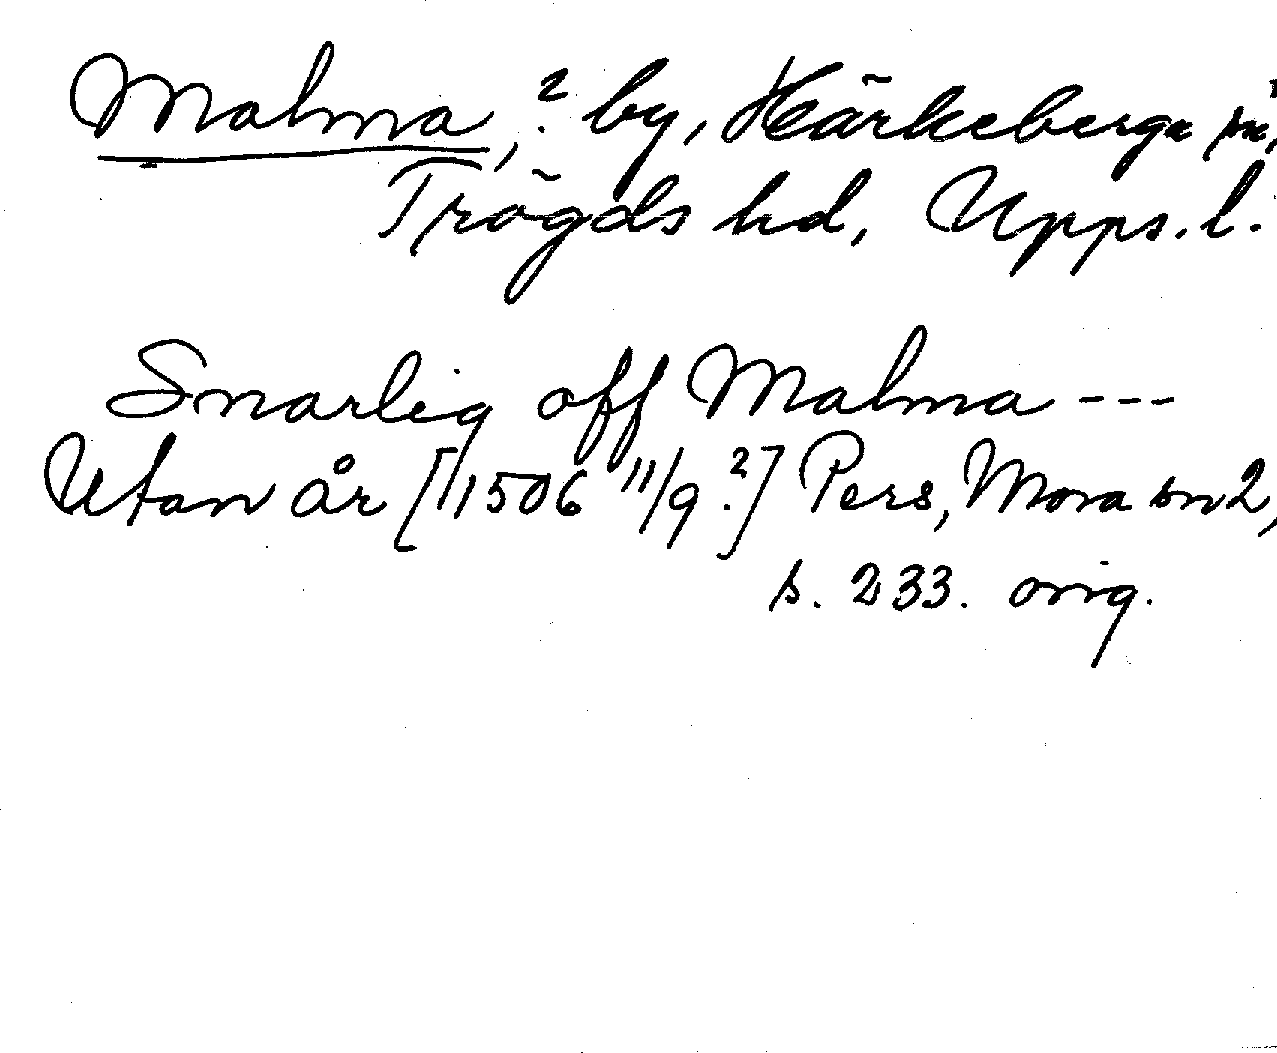 Malma,? by, Härkeberga sn,
Trögds hd, Upps. l.
Snarlig off Malma ---
Utan år [1506 11/9?] Pers, Mora sn 2,
s. 233. orig.